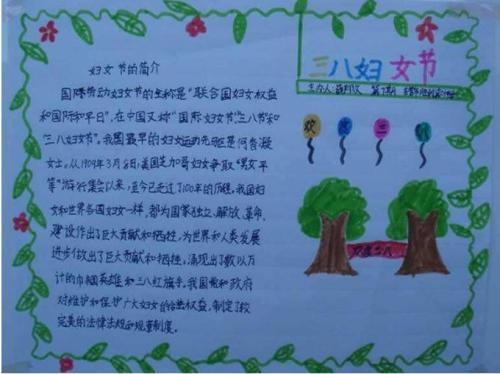 三八妇女节
主办人:
欢 庆 三 八
欢度三八
妇女节的简介
国际劳动妇女节的全称是“联合国妇女权益
和国际和平日”,在中国又称“国际妇女节”、“三八节”和
“三八妇女节”。我国最早的妇女运动先驱是何香凝
女士。从1909年3月8日,美国芝加哥妇女争取“男女平
等”游行集会以来,至今已走过了100年的历程。我国妇
女和世界各国妇女一样,都为国家独立、解放、革命、
建设作出了巨大贡献和牺牲,为世界和人类发展
进步做出了巨大贡献和牺牲,涌现出了数以万
计的巾帼英雄和三八红旗手。我国党和政府
对维护和保护广大妇女的合法权益,制定了较
完美的法律法规和规章制度。